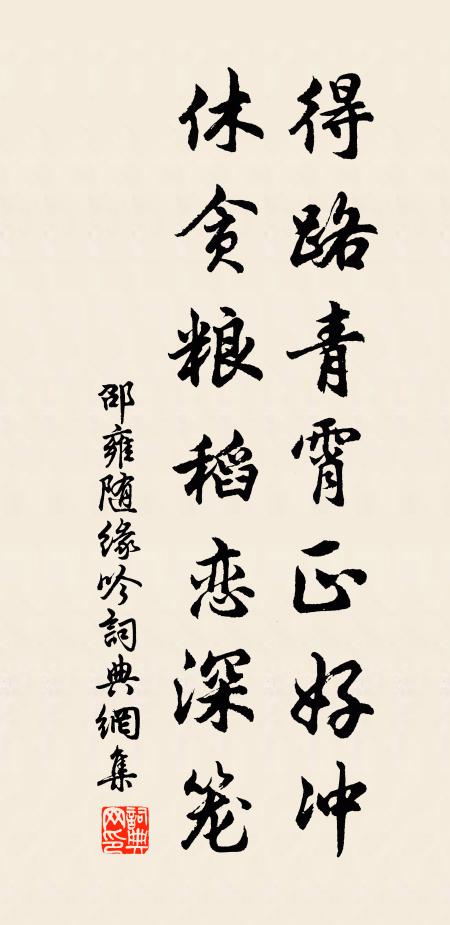 得路青霄正好冲
休贪粮稻恋深笼
邵雍随缘吟詞典網集
詞典
网印